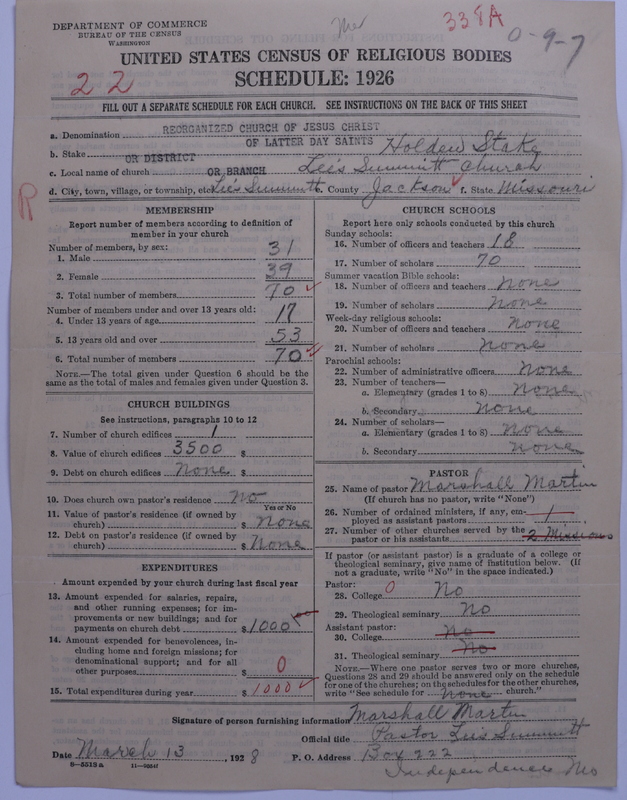 DEPARTMENT OF COMMERCE
BUREAU OF THE CENSUS
WASHINGTON
338A
0-9-7
UNITED STATES CENSUS OF RELIGIOUS BODIES
22
SCHEDULE: 1926
FILL OUT A SEPARATE SCHEDULE FOR EACH CHURCH. SEE INSTRUCTIONS ON THE BACK OF THIS SHEET
a. Denomination REORGANIZED CHURCH OF JESUS CHRIST
OF LATTER DAY SAINTS
b. Stake OR DISTRICT Holden Stake
c. Local name of church OR BRANCH Lee's Summitt Church
d. City, town, village, or township, etc. Lee's Summitt e. County Jackson f. State Missouri
R
MEMBERSHIP
Report number of members according to definition of
member in your church
Number of members, by sex:
1. Male 31
2. Female 39
3. Total number of members 70
Number of members under and over 13 years old:
4. Under 13 years of age 17
5. 13 years old and over 53
6. Total number of members 70
NOTE.—The total given under Question 6 should be
same as the total of males and females given under Question 3.
CHURCH BUILDINGS
See instructions, paragraphs 10 to 12
7. Number of church edifices 1
8. Value of church edifices 3500 $
9. Debt on church edifices None $
10. Does church own pastor's residence No
Yes or No
11. Value of pastor's residence (if owned by
church) $ None
12. Debt on pastor's residence (if owned by
church) $ None
EXPENDITURES
Amount expended by your church during last fiscal year
13. Amount expended for salaries, repairs,
and other running expenses; for im-
provements or new buildings; and for
payments on church debt $ 1000
14. Amount expended for benevolences, in-
cluding home and foreign missions; for
denominational support; and for all
other purposes $ 0
15. Total expenditures during year $ 1000
CHURCH SCHOOLS
Report here only schools conducted by this church
Sunday schools:
16. Number of officers and teachers 18
17. Number of scholars 70
Summer vacation Bible schools:
18. Number of officers and teachers None
19. Number of scholars None
Week-day religious schools:
20. Number of officers and teachers None
21. Number of scholars None
Parochial schools:
22. Number of administrative officers None
23. Number of teachers—
a. Elementary (grades 1 to 8) None
b. Secondary None
24. Number of scholars—
a. Elementary (grades 1 to 8) None
b. Secondary None
PASTOR
25. Name of pastor Marshall Martin
(If church has no pastor, write "None")
26. Number of ordained ministers, if any, em-
ployed as assistant pastors 1
27. Number of other churches served by the
pastor or his assistants 2 Missions
If pastor (or assistant pastor) is a graduate of a college or
theological seminary, give name of institution below. (If
not a graduate, write "No" in the space indicated.)
Pastor:
28. College 0 No
29. Theological seminary No
Assistant pastor:
30. College No
31. Theological seminary No
NOTE.—Where one pastor serves two or more churches,
Questions 28 and 29 should be answered only on the schedule
for one of the churches; on the schedules for the other churches,
write "See schedule for None church."
Signature of person furnishing information Marshall Martin
Official title Pastor Lees Summitt
Date March 13, 1928 P. O. Address Box 222
Independence Mo